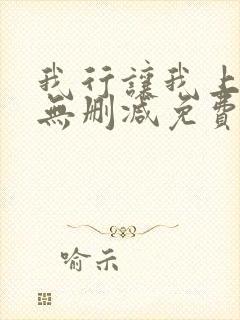 我行讓我上
無刪減免費
喻示